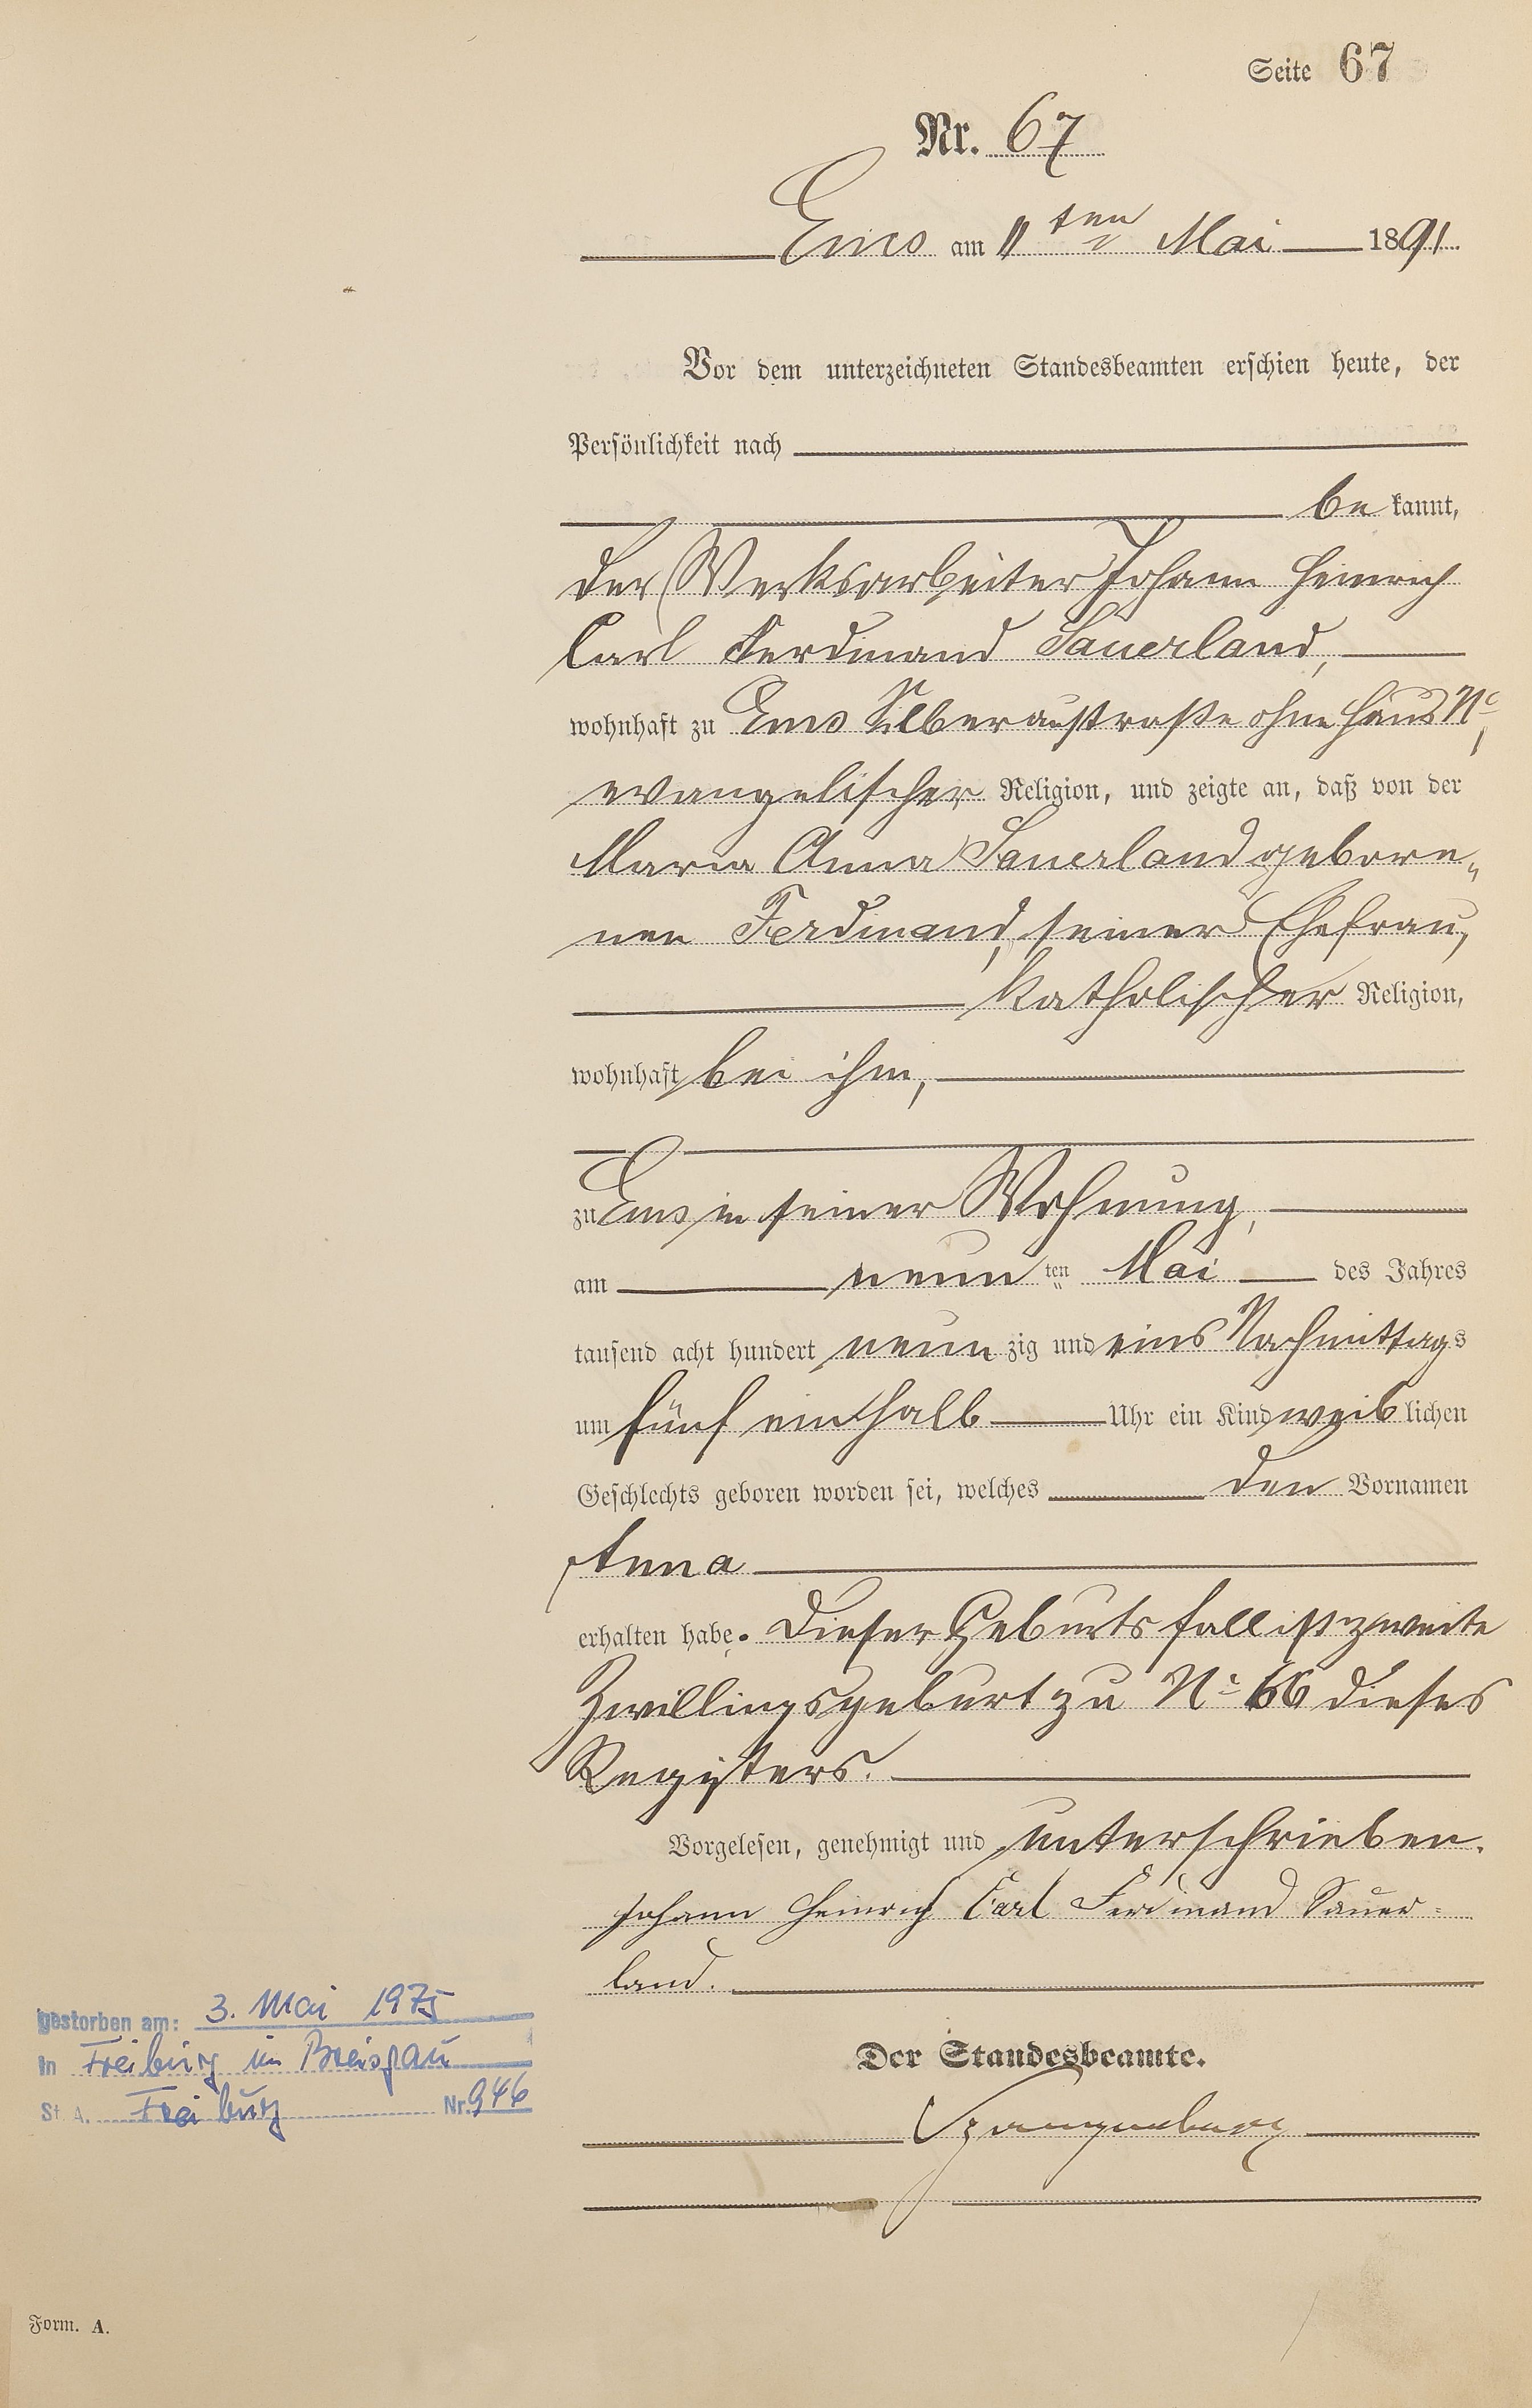 Seite 67
Nr. 67
Ems am 11ten Mai 1891.
Vor dem unterzeichneten Standesbeamten erschien heute, der
Persönlichkeit nach
be kannt,
der Werksarbeiter Johann Heinrich
Carl Ferdinand Sauerland,
wohnhaft zu Ems Silberaustraße ohne Haus No,
evangelischer Religion, und zeigte an, daß von der
Maria Anna Sauerland gebore„
nen Ferdinand, seiner Ehefrau,
katholischer Religion,
wohnhaft bei ihm,
zu Ems in seiner Wohnung,
am neun ten Mai des Jahres
tausend acht hundert neun zig und eins Nachmittags
um fünf einhalb Uhr ein Kind weib lichen
Geschlechts geboren worden sei, welches den Vornamen
Anna
erhalten habe. Dieser Geburtsfall ist zweite
Zwillingsgeburt zu No 66 dieses
Registers.
Vorgelesen, genehmigt und unterschrieben.
Johann Heinrich Carl Ferdinand Sauer=
land.
gestorben am: 3. Mai 1975
in Freiburg im Breisgau
St. A. Freiburg Nr. 946
Der Standesbeamte.
Spangenberg
Form. A.